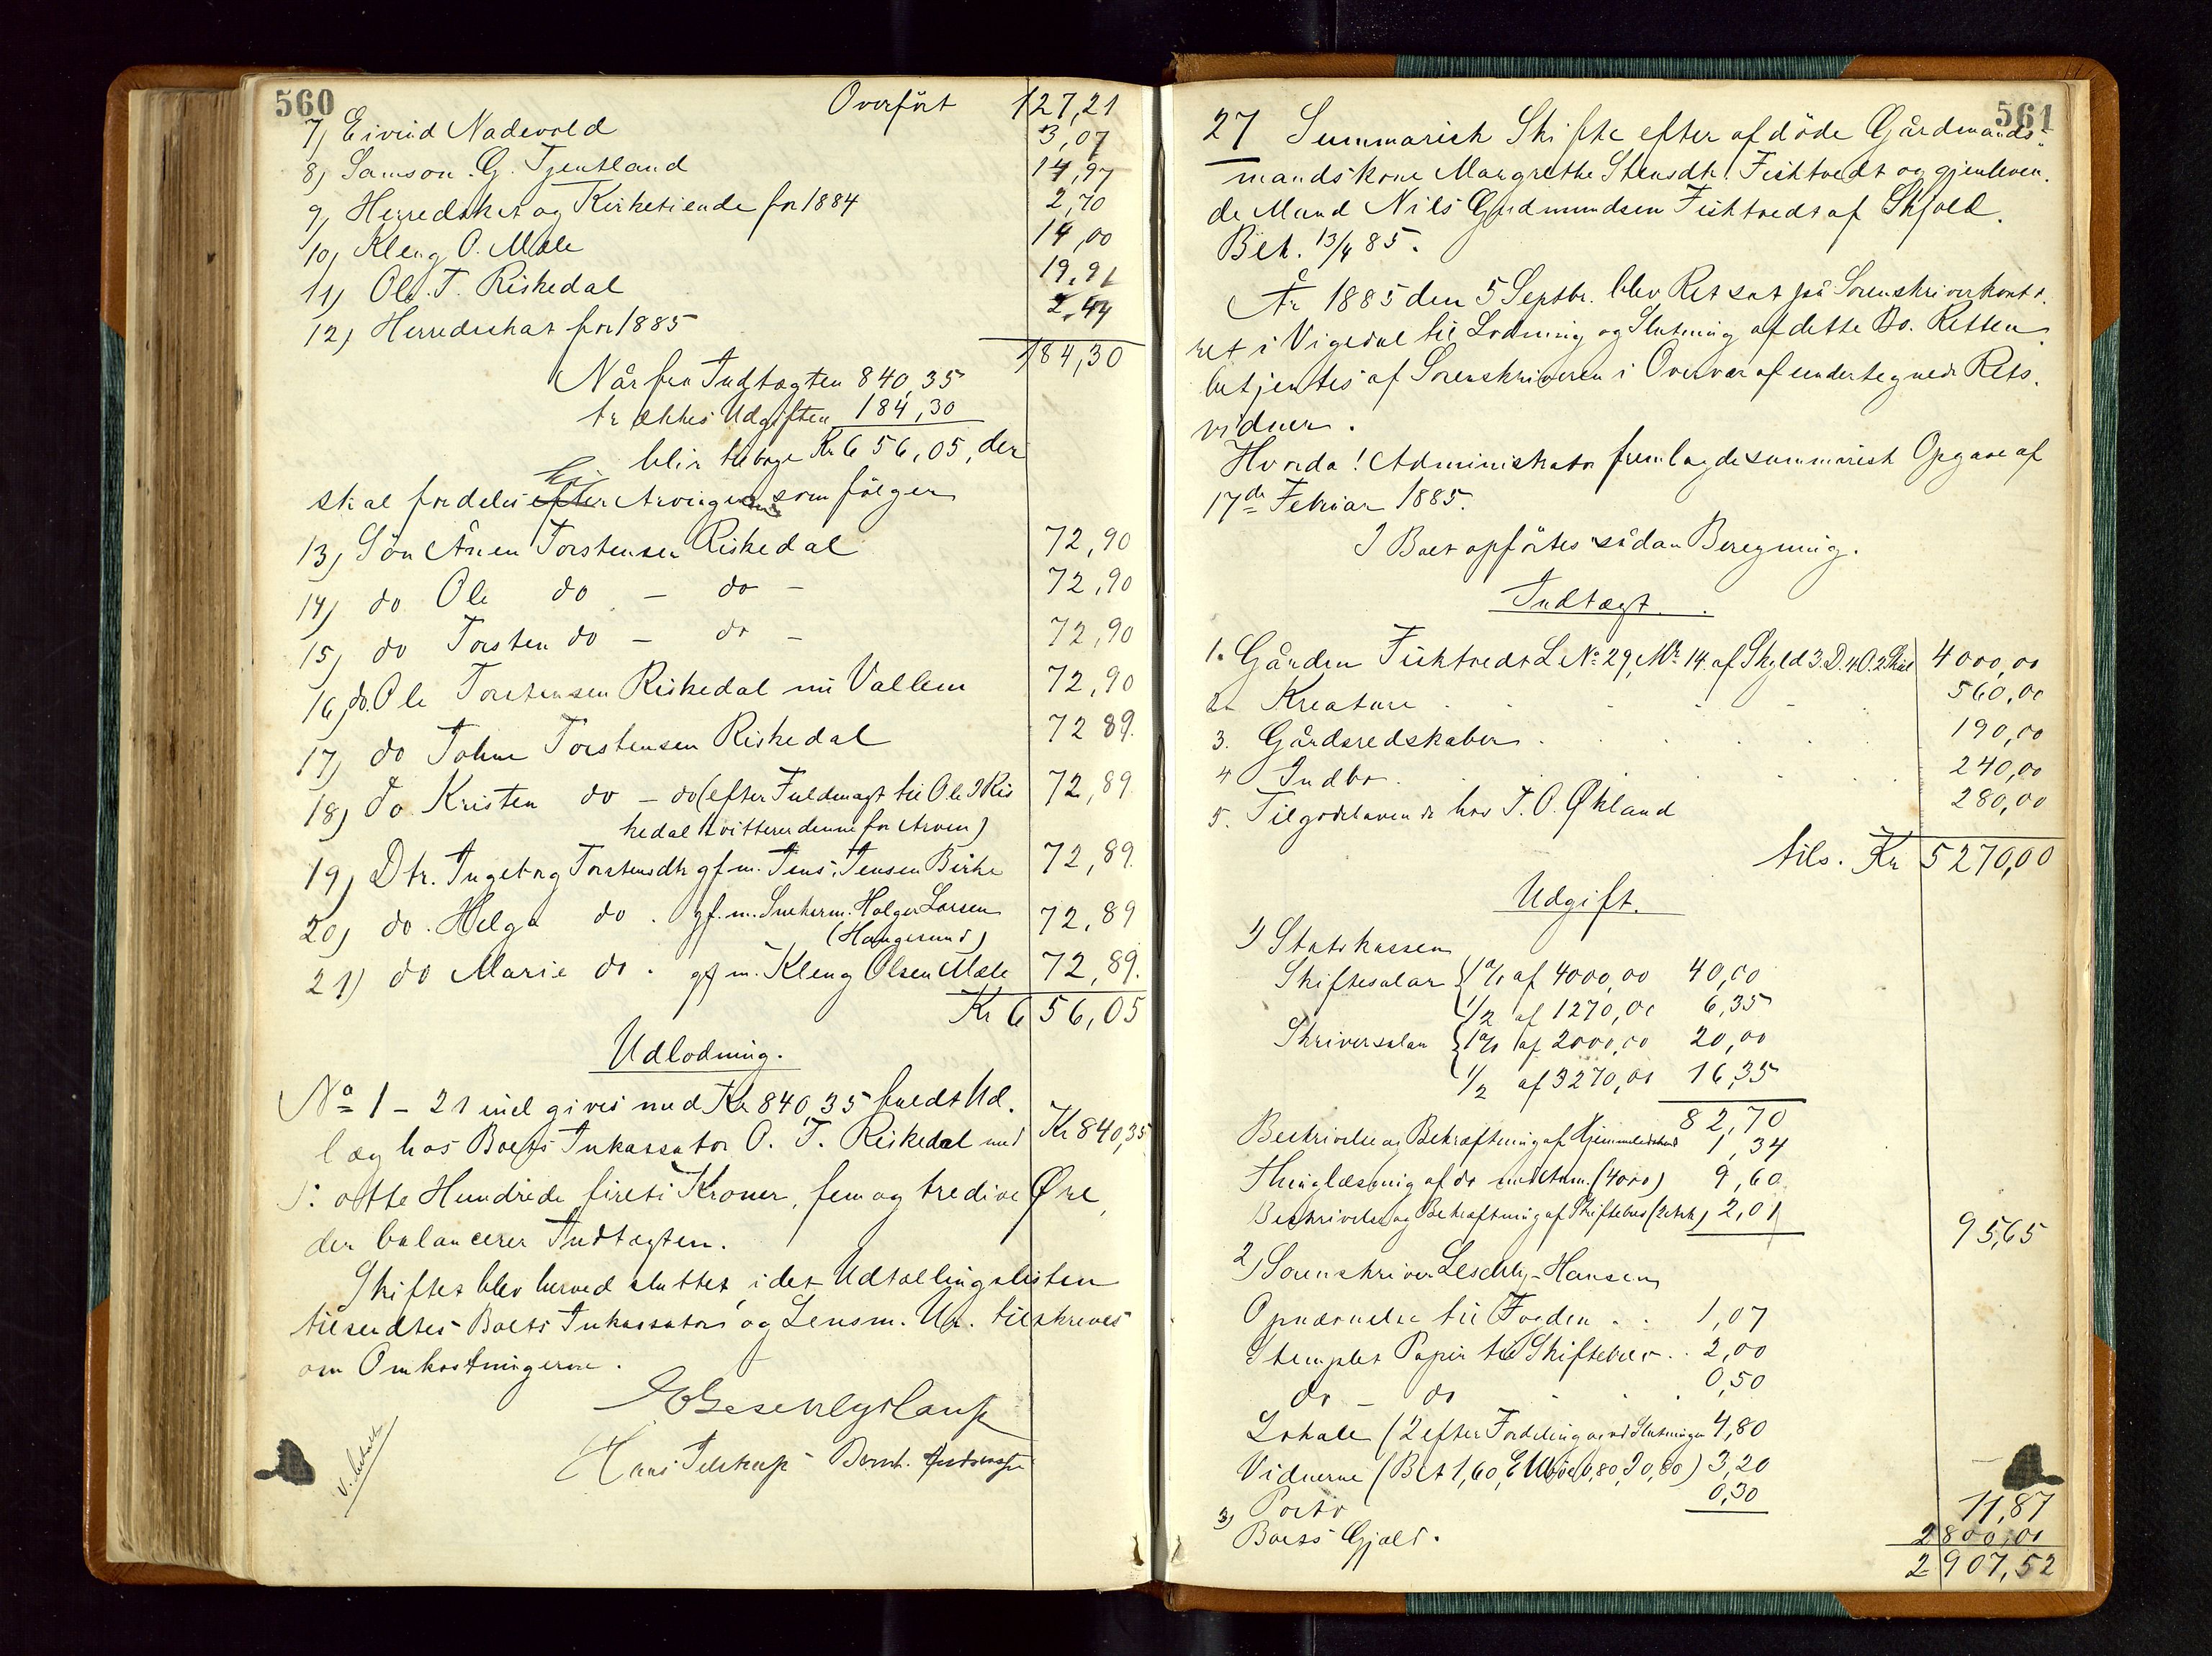 560
Overfört 127,21
7) Eivind Nadevold 3,07
8) Samson G. Tjentland 14,97
9) Herredskat og Kirketiende for 1884 2,70
10) Kleng O. Mæle 14,00
11) Ole T. Riskedal 19,91
12) Herredsskat for 1885 2,44
184,30
Når fra Indtægten 840,35
trækkes Udgiften 184,30
blir tilbage Kr 656,05, der
skal fordeles efter Arvingerne som fölger
13) Sön Ånen Torstensen Riskedal 72,90
14) do Ole do - do - 72,90
15) do Torsten do - do - 72,90
16) do. Ole Torstensen Riskedal nu Vallem 72,90
17) do Johne Torstensen Riskedal 72 89.
18) do Kristen do - do (efter Fuldmagt til Ole T Ris 72,89
kedal kvitterer denne for Arven)
19) Dtr. Ingeborg Torstensdtr gf. m. Jens Jensen Birke 72,89.
20) do. Helga do. gf. m. Snekerm. Holger Larsen 72,89
(Haugesund)
21) do Marie do. gf m. Kleng Olsen Mæle 72,89.
Kr 656,05
Udlodning.
No 1 - 21 incl gives med Kr 840,35 fuldt Ud.
læg hos Boets Inkassator O. T. Riskedal med Kr 840,35
: otte Hundrede fireti Kroner, fem og tredive Øre,
der balancerer Indtægten.
Skiftet blev herved sluttet, idet Udtællingslisten
tilsendtes Boets Inkassator og Lensm. tilskreves
om Omkostningerne.
Hans Bernt.
561
27 Summarisk Skifte efter afdöde Gårdmands-
mandskone Margrethe Stensdtr. Fisktvedt og gjenleven.
de Mand Nils Gudmundsen Fisktvedt af Skjold.
Bek. 13/4 85.
År 1885 den 5 Septbr. blev Ret sat på Sorenskriverkonto.
ret i Vigedal til Lodning og Slutning af dette Bo. Retten
betjentes af Sorenskriveren i Overvær af undertegnede Rets.
vidner.
Hvorda! Administrator fremlagde summarisk Opgave af
17de Februar 1885.
I Boet opförtes sådan Beregning.
Indtægt.
1. Gården Fisktvedt L No 29, Mr 14 af Skyld 3 D. 4 O. 2 Skil 4000,00
2. Kreature 560,00
3. Gårdsredskaber 190,00
4 Indbo. 240,00
5. Tilgodehavende hos T. O. Økland 280,00
tils. Kr 5270,00
Udgift.
1) Statskassen
Skiftesalar { 1% af 4000,00 40,00
1/2 af 1270,00 6,35
Skriversalær { 1% af 2000,00 20,00
1/2 af 3270,00 16,35
82,70
Beskrivelse og Bekræftning af Hjemmelsbrev 1,34
Thinglæsning af do (4000) 9,60
Beskrivelse og Bekræftning af Skiftebrev 2,01
95,65
2) Sorenskriver Leschly-Hansen
Opnævnelse til Fogden 1,07
Stemplet Papir til Skiftebrev 2,00
do - do 0,50
Lokale (2 efter Fordeling ved Slutningen 4,80
Vidnerne (Bek 1,60, 0,80, 0,80) 3,20
Porto 0,30
11,87
3) Boets Gjæld. 2800,00
2907,52